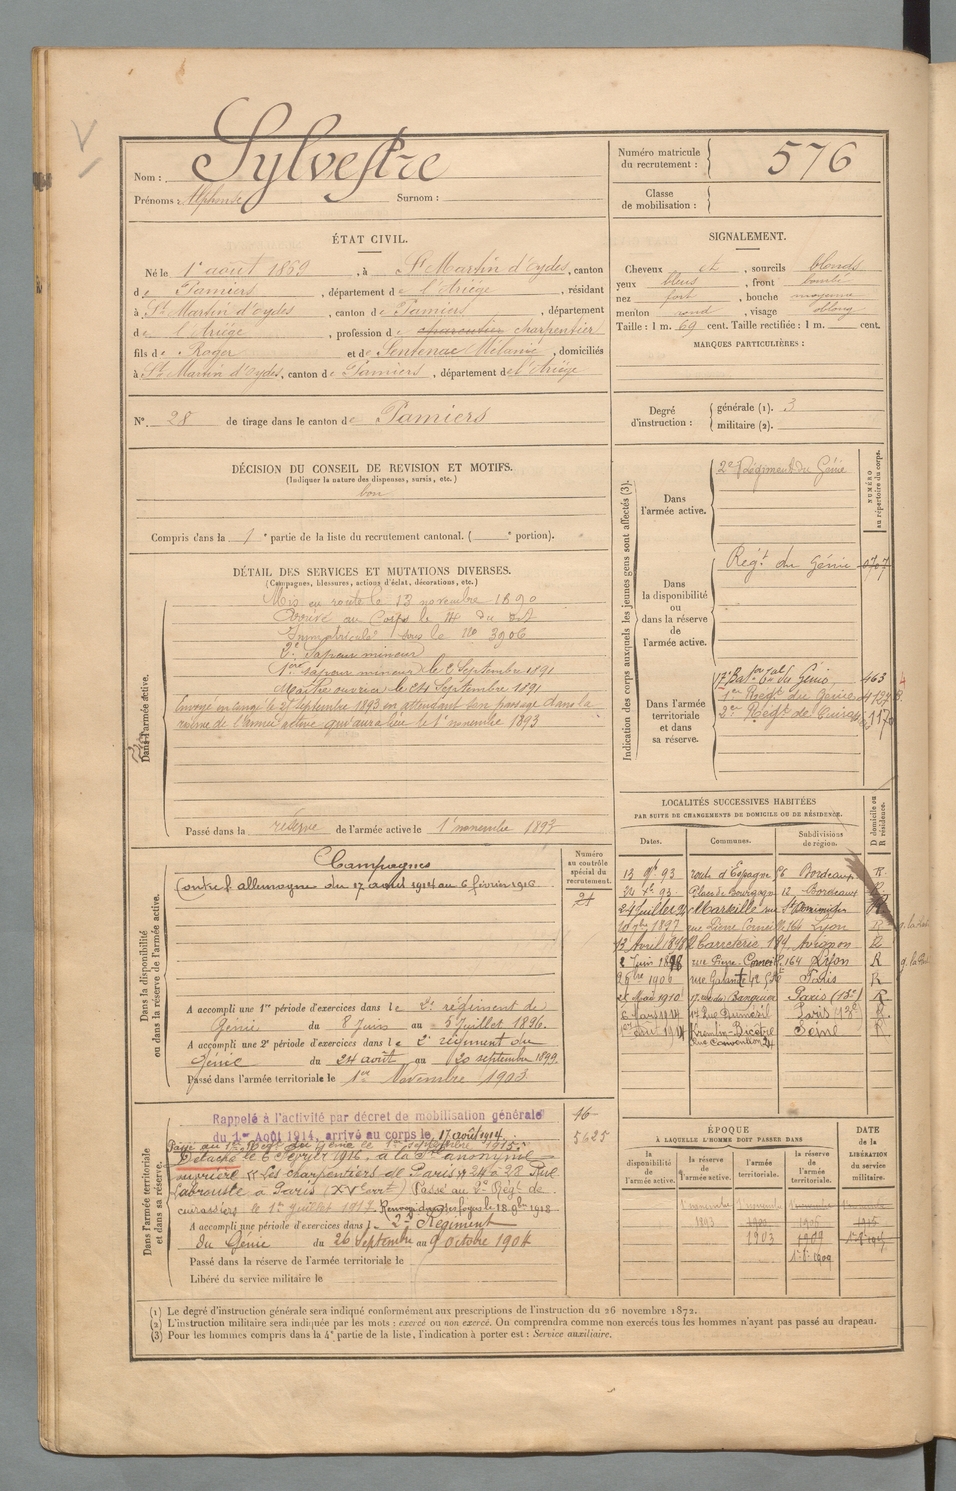 Nom : Sylvestre
Prénoms : Alphonse Surnom :
Numéro matricule du recrutement : 576
Classe de mobilisation :
ÉTAT CIVIL.
Né le 1er août 1869, à St Martin d'Oydes, canton
de Pamiers, département de l'Ariège, résidant
à St Martin d'Oydes, canton de Pamiers, département
de l'Ariège, profession de charpentier
fils de Roger et de Sentenac Mélanie, domiciliés
à St Martin d'Oydes, canton de Pamiers, département de l'Ariège
N° 28 de tirage dans le canton de Pamiers
SIGNALEMENT.
Cheveux et, sourcils blonds
yeux bleus, front bombé
nez fort, bouche moyenne
menton rond, visage oblong
Taille : 1 m. 69 cent. Taille rectifiée : 1 m. cent.
MARQUES PARTICULIÈRES :
Degré d'instruction : générale (1). 3
militaire (2).
DÉCISION DU CONSEIL DE REVISION ET MOTIFS.
(Indiquer la nature des dispenses, sursis, etc.)
bon
Compris dans la 1e partie de la liste du recrutement cantonal. (e portion).
DÉTAIL DES SERVICES ET MUTATIONS DIVERSES.
(Campagnes, blessures, actions d'éclat, décorations, etc.)
Dans l'armée active.
Mis en route le 13 novembre 1890
Arrivé au Corps le 14 du dit
Immatriculé sous le no 3906
2e Sapeur mineur
1er sapeur mineur le 2 Septembre 1891
Maître ouvrier le 24 Septembre 1891
Envoyé en congé le 21 septembre 1893 en attendant son passage dans la
réserve de l'armée active qui aura lieu le 1er novembre 1893
Passé dans la réserve de l'armée active le 1er novembre 1893
Indication des corps auxquels les jeunes gens sont affectés (3).
NUMÉRO au répertoire du corps.
Dans l'armée active.
2e Régiment du Génie
Dans la disponibilité ou dans la réserve de l'armée active.
Regt du Génie 0707
Dans l'armée territoriale et dans sa réserve.
17e Baton tal du Génie 463
1er Regt du Génie
2me Regt de Cuirass
LOCALITÉS SUCCESSIVES HABITÉES
PAR SUITE DE CHANGEMENTS DE DOMICILE OU DE RÉSIDENCE.
D domicile ou R résidence.
Dates. Communes. Subdivisions de région.
13 9bre 93 route d'Espagne Bordeaux R
Place de Bourgogne 12 Bordeaux R
24 Juillet Marseille rue St Dominique R
10 9bre 1897 rue Pierre Corneille 164 Lyon R
13 Avril 1898 Carreterie 194 Avignon R
2 Juin 1898 rue Pierre Corneille 164 Lyon R
1906 rue Galante Paris R
Mai 1910 Paris (13e) R
6 Mars 1914 17 Rue Duméril Paris 13e R
1914 Kremlin-Bicêtre Seine R
Rue Convention 24
Dans la disponibilité ou dans la réserve de l'armée active.
Numéro au contrôle spécial du recrutement.
Campagnes
Contre l'allemagne du 17 août 1914 au 6 février 1916
A accompli une 1re période d'exercices dans le 2e régiment de
Génie du 8 Juin au 5 Juillet 1896.
A accompli une 2e période d'exercices dans le 2e régiment du
Génie du 24 août au 20 septembre 1899.
Passé dans l'armée territoriale le 1er Novembre 1903
Dans l'armée territoriale et dans sa réserve.
16-
5625
Rappelé à l'activité par décret de mobilisation générale
du 1er Août 1914, arrivé au corps le 17 août 1914.
Passé au 1er Regt du Génie le 1er septembre 1915.
Détaché le 6 Février 1916, à la Sté anonyme
ouvrière « Les charpentiers de Paris » 24 à 28 Rue
Labrouste à Paris (XVe arrt) Passé au 2e Régt de
cuirassiers le 1er Juillet 1917. Renvoyé dans ses foyers le 18 9bre 1918
A accompli une période d'exercices dans le 2e Régiment
du Génie du 26 Septembre au 9 octobre 1904
Passé dans la réserve de l'armée territoriale le
Libéré du service militaire le
ÉPOQUE
À LAQUELLE L'HOMME DOIT PASSER DANS
la disponibilité de l'armée active.
la réserve de l'armée active.
l'armée territoriale.
la réserve de l'armée territoriale.
DATE de la LIBÉRATION du service militaire.
1er novembre 1er novembre 1er novembre 1er novembre
1893 1900 1906 1915
1903 1909
(1) Le degré d'instruction générale sera indiqué conformément aux prescriptions de l'instruction du 26 novembre 1872.
(2) L'instruction militaire sera indiquée par les mots : exercé ou non exercé. On comprendra comme non exercés tous les hommes n'ayant pas passé au drapeau.
(3) Pour les hommes compris dans la 4e partie de la liste, l'indication à porter est : Service auxiliaire.